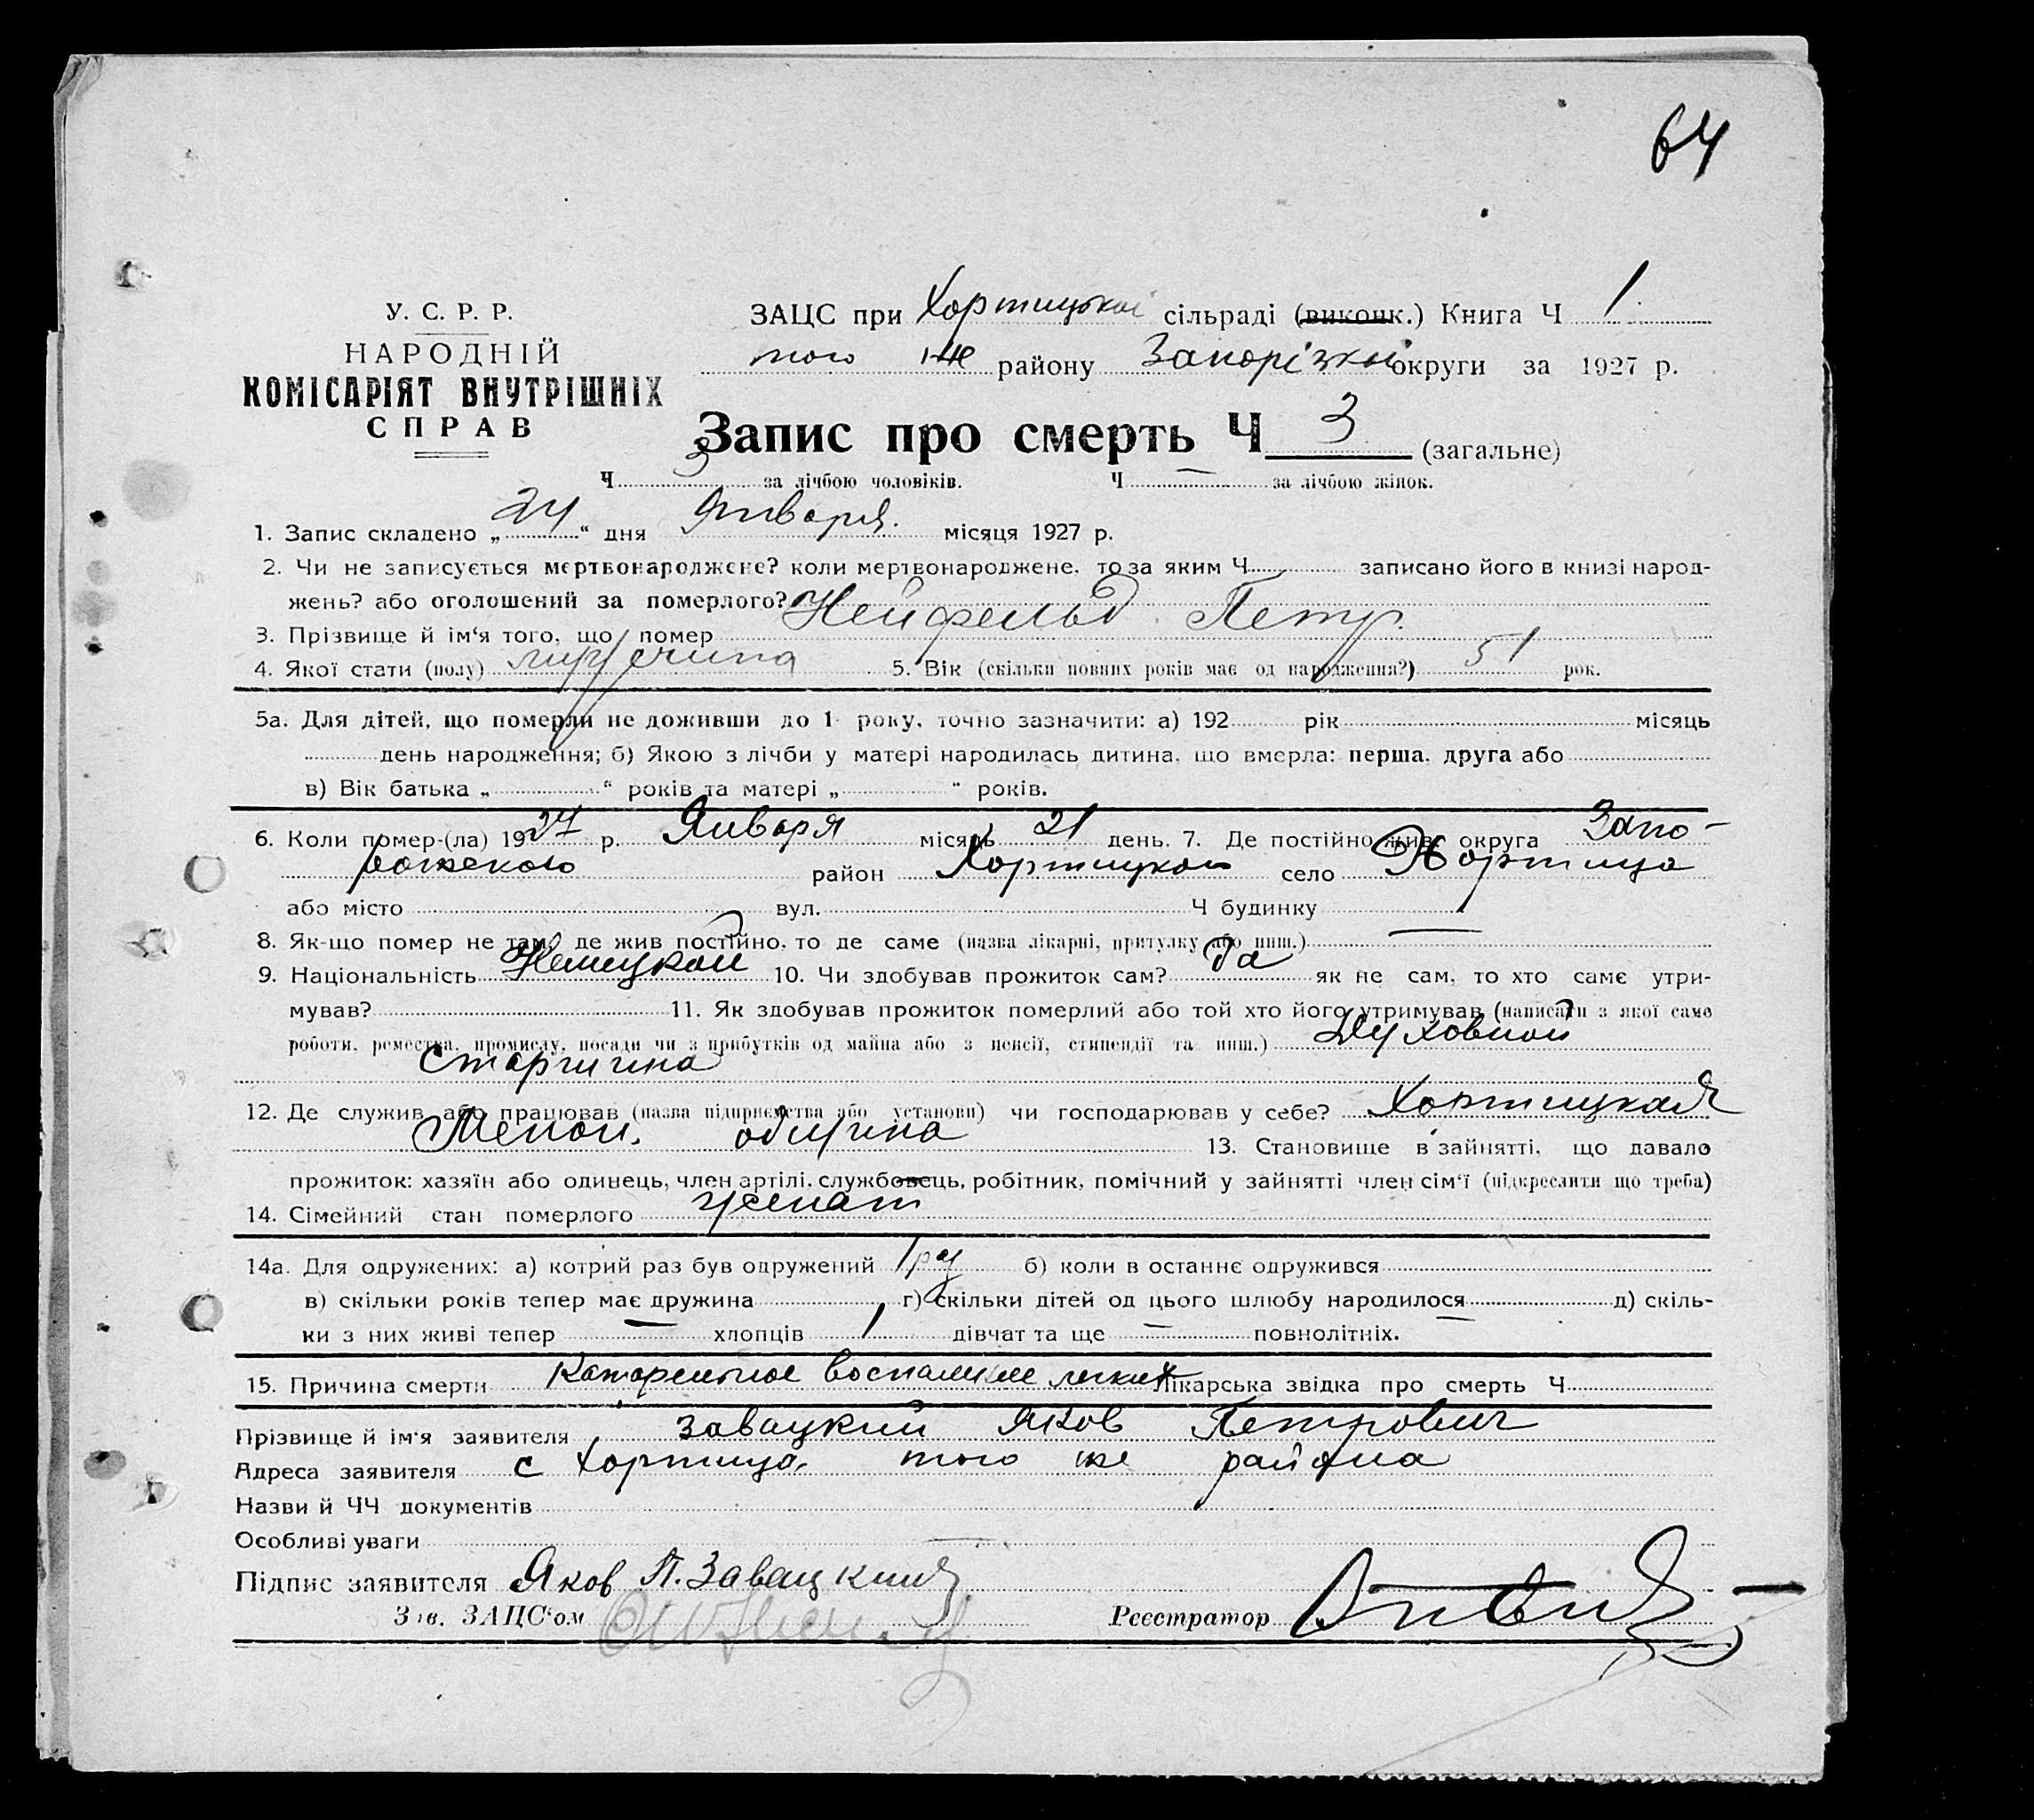 64
У. С. Р. Р.
НАРОДНІЙ
КОМІСАРІЯТ ВНУТРІШНІХ
СПРАВ
ЗАЦС при Хортицькоі сільраді (виконк.) Книга Ч 1.
того же району Запорізкоі округи за 1927 р.
Запис про смерть Ч 3 (загальне)
Ч 3 за лічбою чоловіків. Ч — за лічбою жінок.
1. Запис складено „24“ дня Января. місяця 1927 р.
2. Чи не записується мертвонароджене? коли мертвонароджене, то за яким Ч записано його в книзі народ-
жень? або оголошений за померлого?
3. Прізвище й ім‘я того, що помер Нейфельд Петр.
4. Якої стати (полу) мущина 5. Вік (скільки повних років має од народження?) 51 рок.
5а. Для дітей, що померли не доживши до 1 року, точно зазначити: а) 192 рік місяць
день народження; б) Якою з лічби у матері народилась дитина, що вмерла: перша, друга або
в) Вік батька „ “ років та матері „ “ років.
6. Коли помер-(ла) 1927 р. Января місяць 21 день. 7. Де постійно жив: округа Запо-
рожскою район Хортицкой село Хортица
або місто вул. Ч будинку
8. Як-що помер не там, де жив постійно, то де саме (назва лікарні, притулку або инш.) —
9. Національність Немецкой 10. Чи здобував прожиток сам? да як не сам, то хто саме утри-
мував? 11. Як здобував прожиток померлий або той хто його утримував (написати з якої само
роботи, ремества, промислу, посади чи з прибутків од майна або з пенсії, стипендії та инш.) Духовной
старшина
12. Де служив або працював (назва підприємства або установи) чи господарював у себе? Хортицкая
Менон. община 13. Становище в зайнятті, що давало
прожиток: хазяїн або одинець, член артілі, службовець, робітник, помічний у зайнятті член сім‘ї (підкреслити що треба)
14. Сімейний стан померлого женат
14а. Для одружених: а) котрий раз був одружений 1 раз б) коли в останнє одружився
в) скільки років тепер має дружина г) скільки дітей од цього шлюбу народилося д) скіль-
ки з них живі тепер — хлопців 1 дівчат та ще — повнолітніх. —
15. Причина смерти Катаральное воспаление легких Лікарська звідка про смерть Ч
Прізвище й ім‘я заявителя Завацкий Яков Петрович
Адреса заявителя с Хортица, того же района
Назви й ЧЧ документів
Особливі уваги
Підпис заявителя Яков П. Завацкий
Зав. ЗАЦС‘ом
Реєстратор